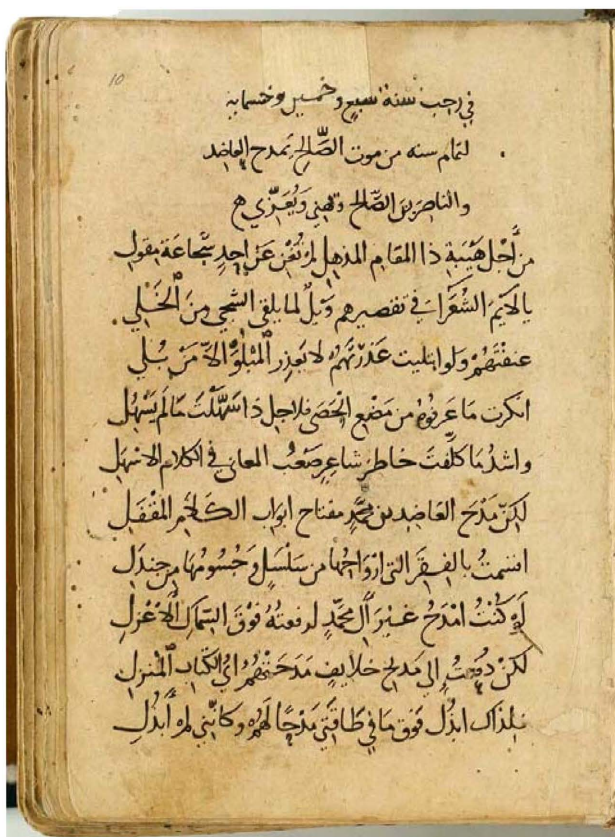 10
في رجب سنة سبع وخمسين وخمسمايه
لتمام سنه من موت الصَّالِح يمدح العاضد
والناصر بن الصَّالح ويهني وَيُعَزِّي
من أَجل هَيْبَةِ ذا المقام المذهل لم تُغْنِ عَن احدٍ شجاعَة مِقوَلِ
يا لايمَ الشُّعَرَا في تقصيرهم وَيلٌ لما يلقى الشجي مِنَ الخَلِي
عنفتَهُمْ ولو ابتليت عَذَرتَهُم لا يَعذِر المَبْلُوَّ الاَّ مَن بُلي
انكرت ما عَرفوهُ من مَضغ الحَصَى فلاجل ذا سَهَّلْتَ مَا لم يَسْهُل
واشدُّ مَا كلَّفتَ خاطر شاعرٍ صَعْبُ المعاني في الكلام الاسْهَل
لكنّ مَدْحَ العَاضد بن محمَّدٍ مفتاح ابواب الكَلام المقْفَلِ
اقسمتُ بالفِقَر التي ارْوَاحُها من سَلْسَلٍ وجُسُومُها من جندَلِ
لو كُنْتُ امْدَحُ غَيْرَ آلَ محمَّدٍ لرفعتُهُ فَوْقَ السِّماكِ الأَعْزَلِ
لكنْ دُفِعْتُ الى مَدايح خلايفٍ مَدَحَتْهُمُ آيُ الكِتَابِ المُنْزَلِ
فلذاك ابذُل فَوق مَا في طَاقَتي مَدْحًا لَهُم وكانني لم أَبْذُلِ